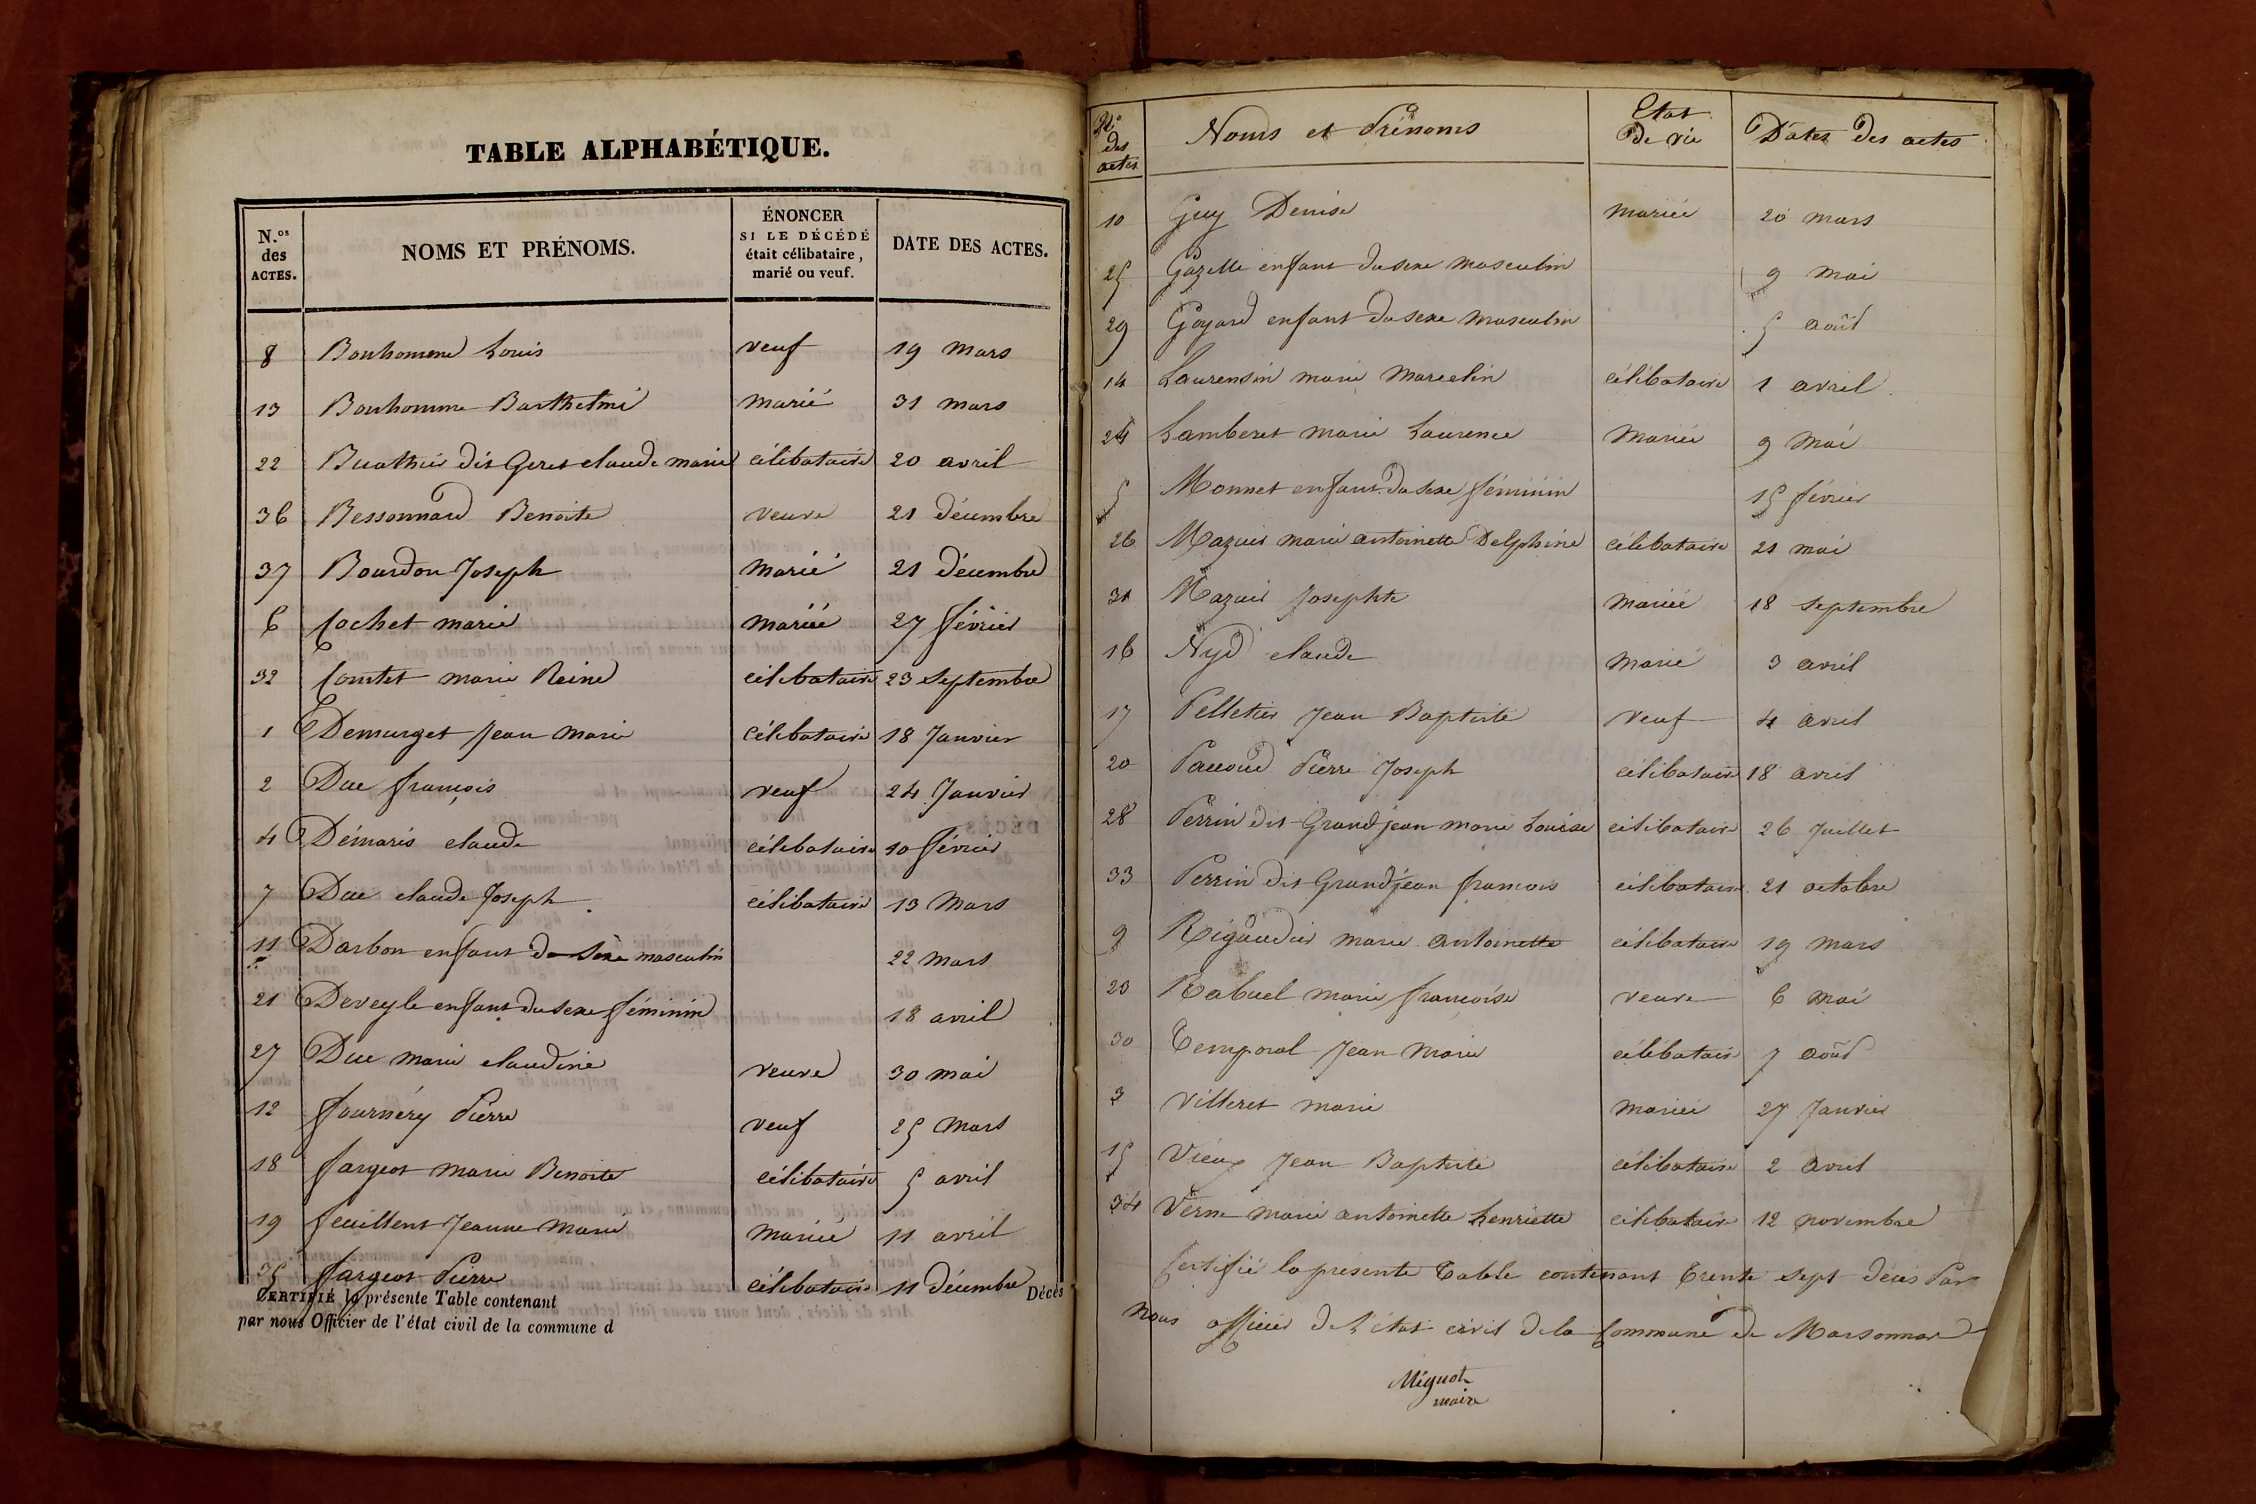 TABLE ALPHABÉTIQUE.
N.os des ACTES. NOMS ET PRÉNOMS. ÉNONCER SI LE DÉCÉDÉ était célibataire, marié ou veuf. DATE DES ACTES.
8 Bonhomme Louis veuf 19 mars
13 Bonhomme Barthelmi marié 31 mars
22 Buathier dit Geret claude marie célibataire 20 avril
36 Bessonnard Benoite veuve 21 décembre
37 Bourdon Joseph marié 21 décembre
6 Cochet marie mariée 27 février
32 Comtet marie Reine célibataire 23 septembre
1 Demurget Jean Marie célibataire 18 Janvier
2 Duc françois veuf 24 Janvier
4 Démaris claude célibataire 10 février
7 Duc claude Joseph célibataire 13 Mars
11 Darbon enfant du sexe masculin 22 mars
21 Deveyle enfant du sexe féminin 18 avril
27 Duc marie claudine veuve 30 mai
12 fournéry Pierre veuf 25 Mars
18 fargeot marie Benoite célibataire 5 avril
19 feuillent Jeanne Marie mariée 11 avril
35 fargeot Pierre célibataire 11 décembre
Décès
CERTIFIÉ la présente Table contenant
par nous Officier de l'état civil de la commune d
N.o des actes Noms et Prénoms Etat de vie Dates des actes
10 Guy Denise mariée 20 mars
25 Gazelle enfant du sexe masculin 9 mai
29 Goyard enfant du sexe masculin 5 août
14 Laurensin marie Marcelin célibataire 1 avril
24 Lamberet marie Laurence mariée 9 mai
5 Monnet enfant du sexe féminin 15 février
26 Mazuir marie antoinette Delphine célibataire 21 mai
31 Mazuir Josephte mariée 18 septembre
16 Nyd claude marié 3 avril
17 Pelletier Jean Baptiste veuf 4 avril
20 Paccoud Pierre Joseph célibataire 18 avril
28 Perrin dit Grandjean marie Louise célibataire 26 Juillet
33 Perrin dit Grandjean francois célibataire 21 octobre
9 Rigaudier marie antoinette célibataire 19 mars
23 Rabuel marie françoise veuve 6 mai
30 Temporal Jean Marie célibataire 7 août
3 Villeret marie mariée 27 Janvier
15 Vieux Jean Baptiste célibataire 2 avril
34 Verne marie antoinette henriette célibataire 12 novembre
Certifié la présente Table contenant Trente sept décès Par
nous officier de l'état civil de la Commune de Marsonnas
Mignot
maire